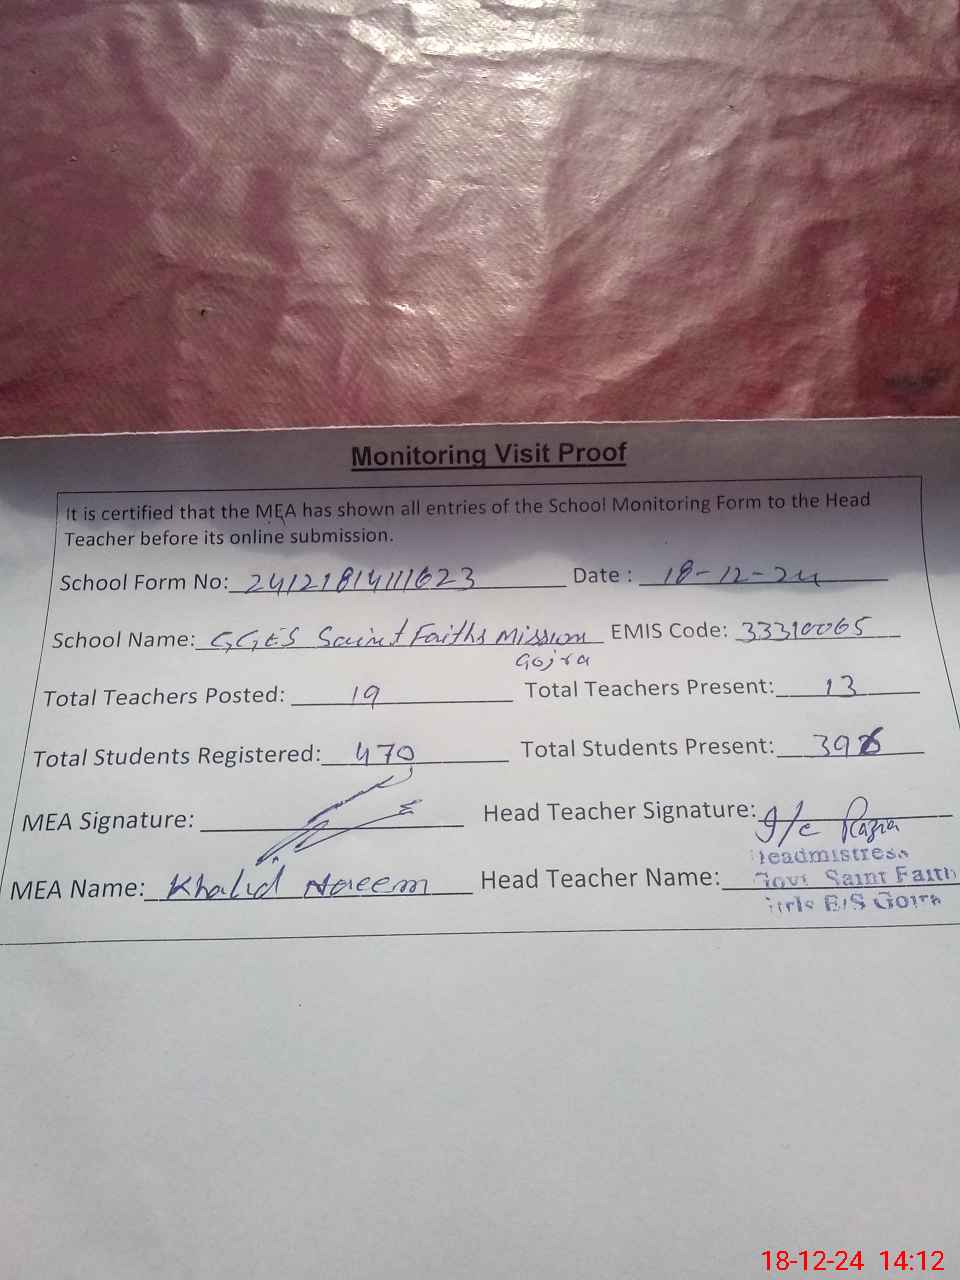 Monitoring Visit Proof
It is certified that the MEA has shown all entries of the School Monitoring Form to the Head
Teacher before its online submission.
School Form No: 24121814111623 Date : 18-12-24
School Name: GGES Saint Faiths Mission EMIS Code: 33310065
Gojra
Total Teachers Posted: 19 Total Teachers Present: 13
Total Students Registered: 470 Total Students Present:
MEA Signature: Head Teacher Signature: I/c Razia
Headmistress
MEA Name: Khalid Naeem Head Teacher Name: Govt Saint Faith
Girls E/S Gojra
18-12-24 14:12